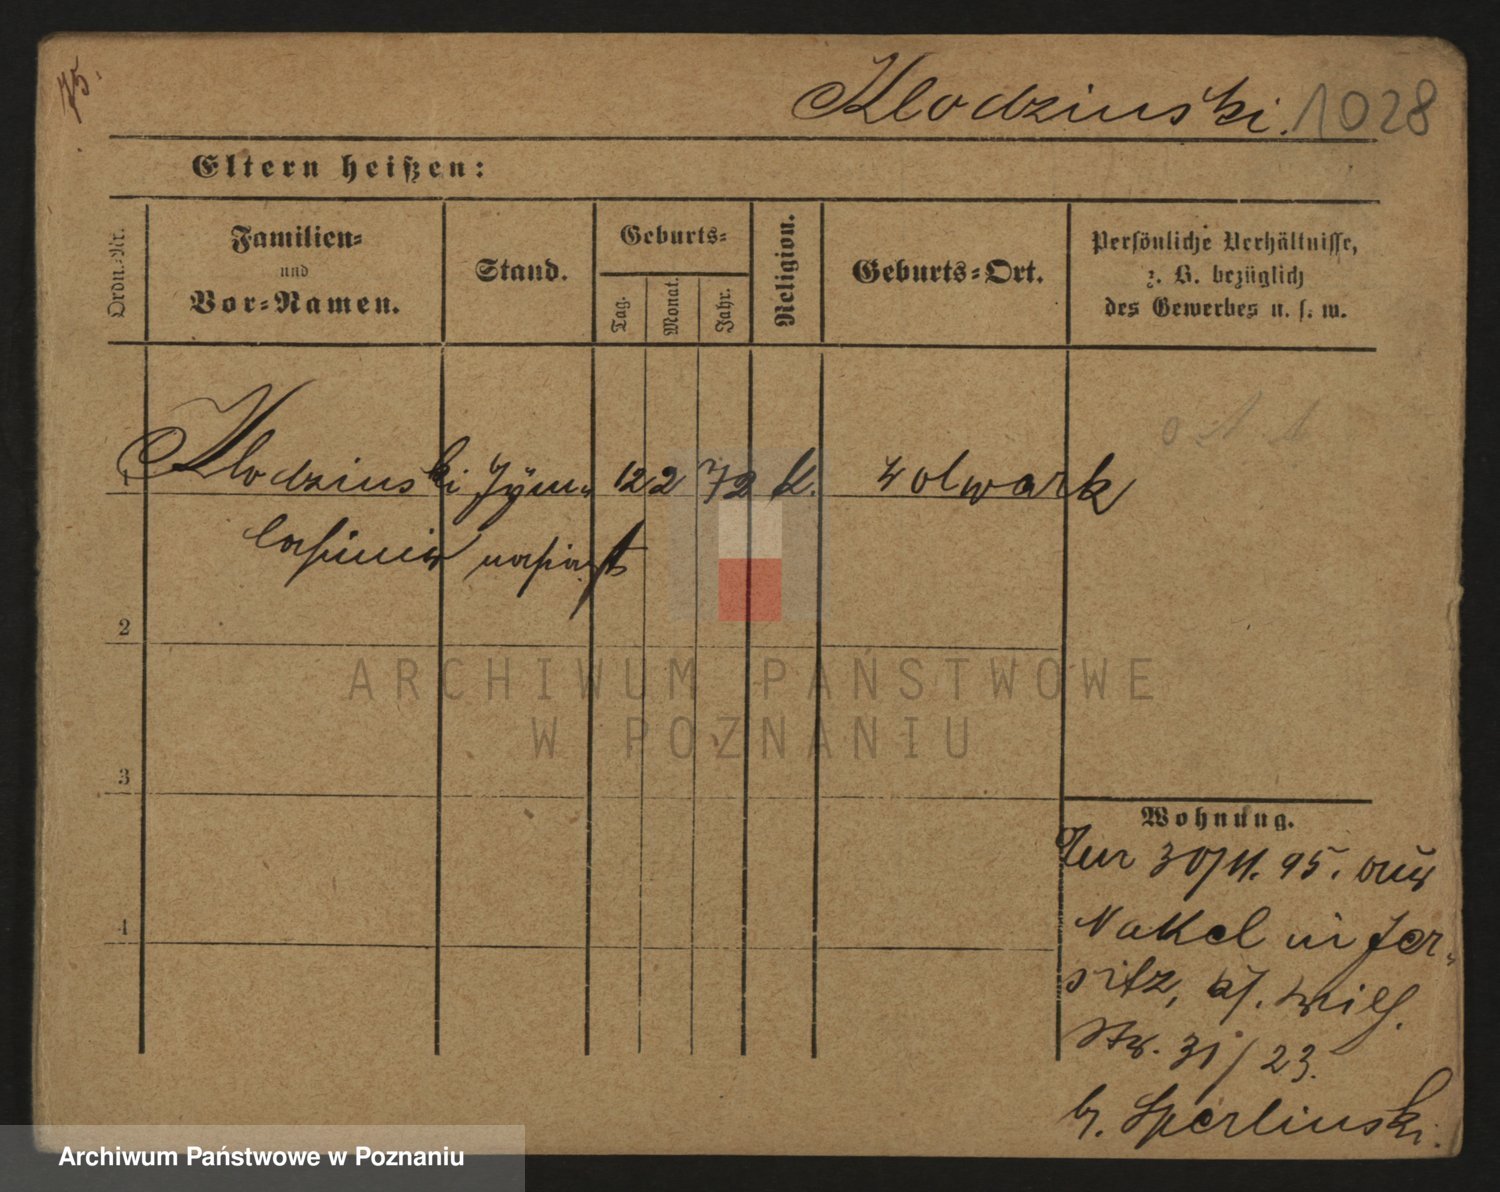 75.
Klodzinski. 1028
Eltern heißen:
Ordn.-Nr.
Familien-
und
Vor-Namen.
Stand.
Geburts-
Tag.
Monat.
Jahr.
Religion.
Geburts-Ort.
Persönliche Verhältnisse,
z. B. bezüglich
des Gewerbes u. s. w.
1 Klodzinski Gym- 12 2 72 k. Folwark
Casimir nasiast
2
3
4
Wohnung.
30/11. 95. aus
Nakel in Jer-
sitz, Wilh.
Str. 31/23.
b. Sperlinski.
ARCHIWUM PAŃSTWOWE
W POZNANIU
Archiwum Państwowe w Poznaniu